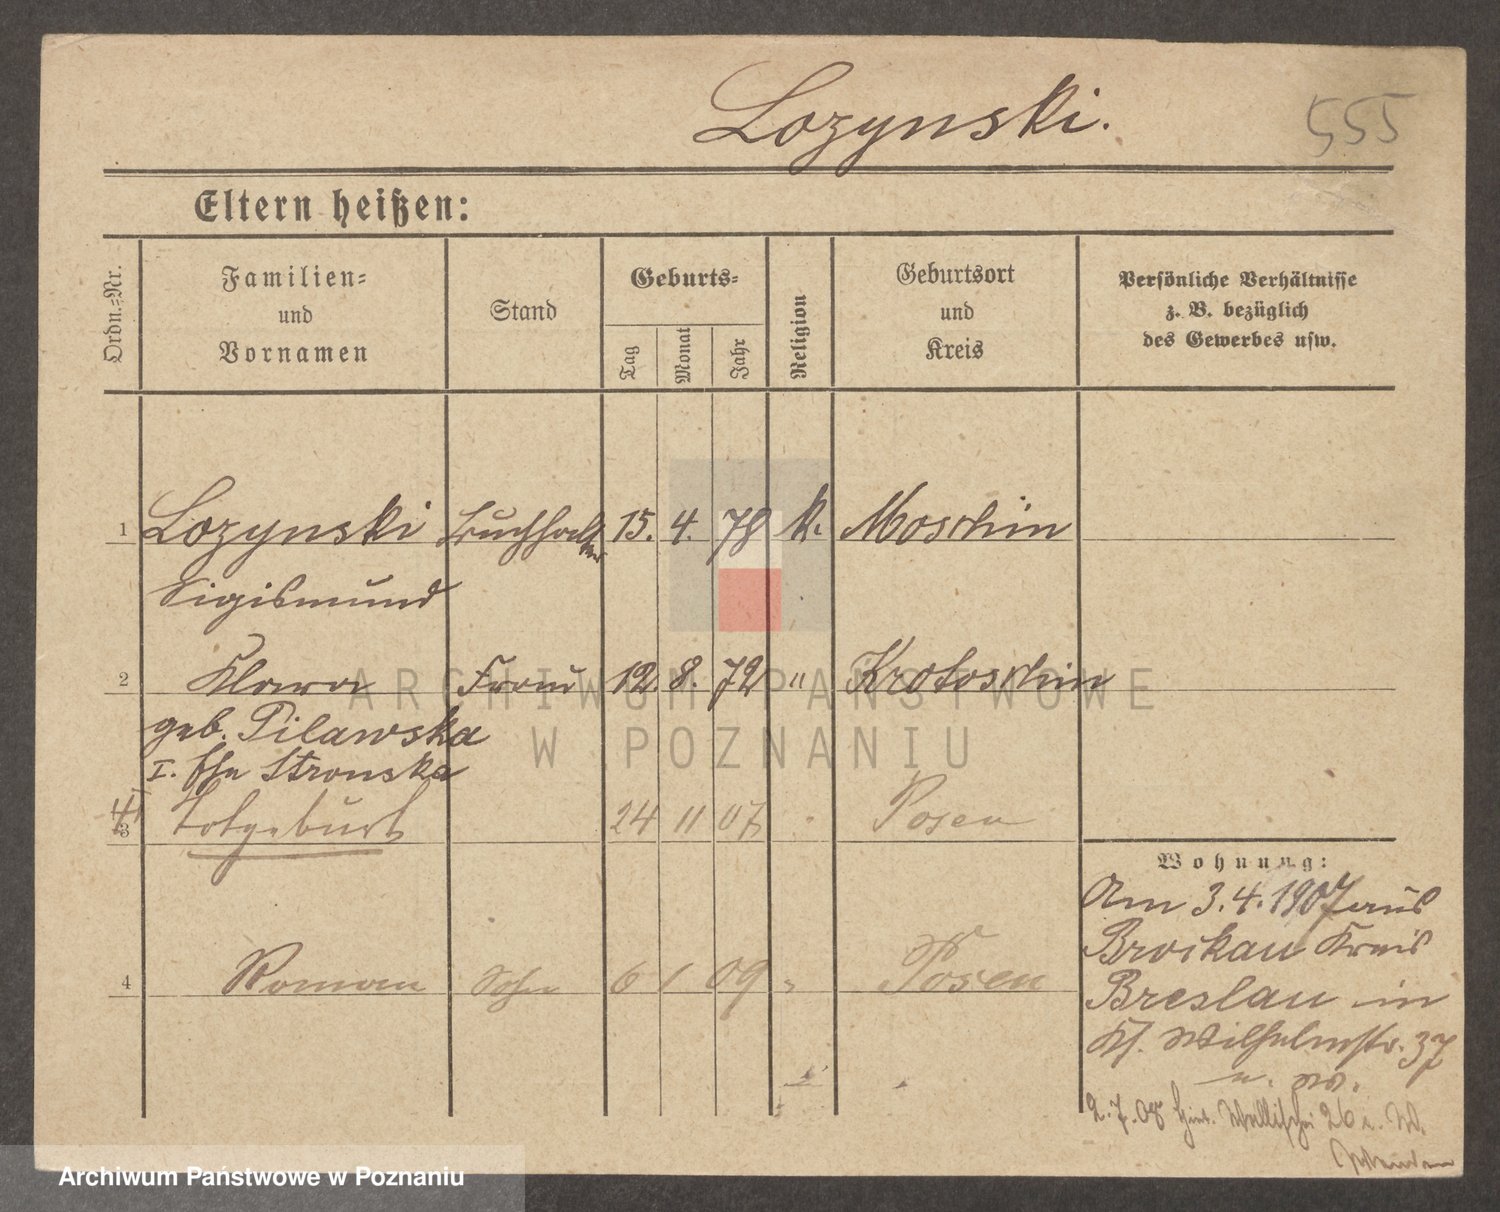 Lozynski.
555
Eltern heißen:
Ordn.=Nr.
Familien=
und
Vornamen
Stand
Geburts=
Tag
Monat
Jahr
Religion
Geburtsort
und
Kreis
Persönliche Verhältnisse
z. B. bezüglich
des Gewerbes usw.
1 Lozynski Buchhalter 15. 4. 78 k. Moschin
Sigismund
2 Klara Frau 12. 8. 72 " Krotoschin
geb. Pilawska
I. Ehe Stronska
3 Totgeburt 24 11 07 Posen
Wohnung:
Am 3.4.1907 aus
Brockau Kreis
Breslau in
Kl. Wilhelmstr. 37
4 Roman Sohn 6 1 09 " Posen
2.7.08 Hint. Wallischei 26
ARCHIWUM PAŃSTWOWE
W POZNANIU
Archiwum Państwowe w Poznaniu